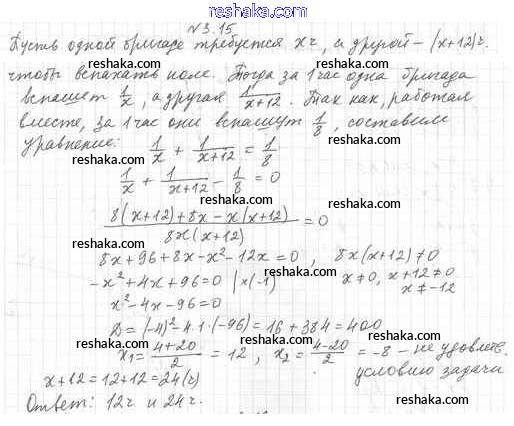 reshaka.com
№3.15
Пусть одной бригаде требуется x ч, а другой – (x+12) ч.
чтобы вспахать поле. Тогда за 1 час одна бригада
вспашет 1/x, а другая 1/(x+12). Так как, работая
вместе, за 1 час они вспашут 1/8, составим
уравнение: 1/x + 1/(x+12) = 1/8
1/x + 1/(x+12) - 1/8 = 0
(8(x+12)+8x-x(x+12))/(8x(x+12)) = 0
8x+96+8x-x²-12x=0, 8x(x+12)≠0
-x²+4x+96=0 |×(-1) x≠0, x+12≠0
x²-4x-96=0 x≠-12
D=(-4)²-4·1·(-96)=16+384=400
x₁=(4+20)/2=12, x₂=(4-20)/2=-8 – не удовлетв.
условию задачи
x+12=12+12=24(ч)
Ответ: 12ч и 24ч.
reshaka.com